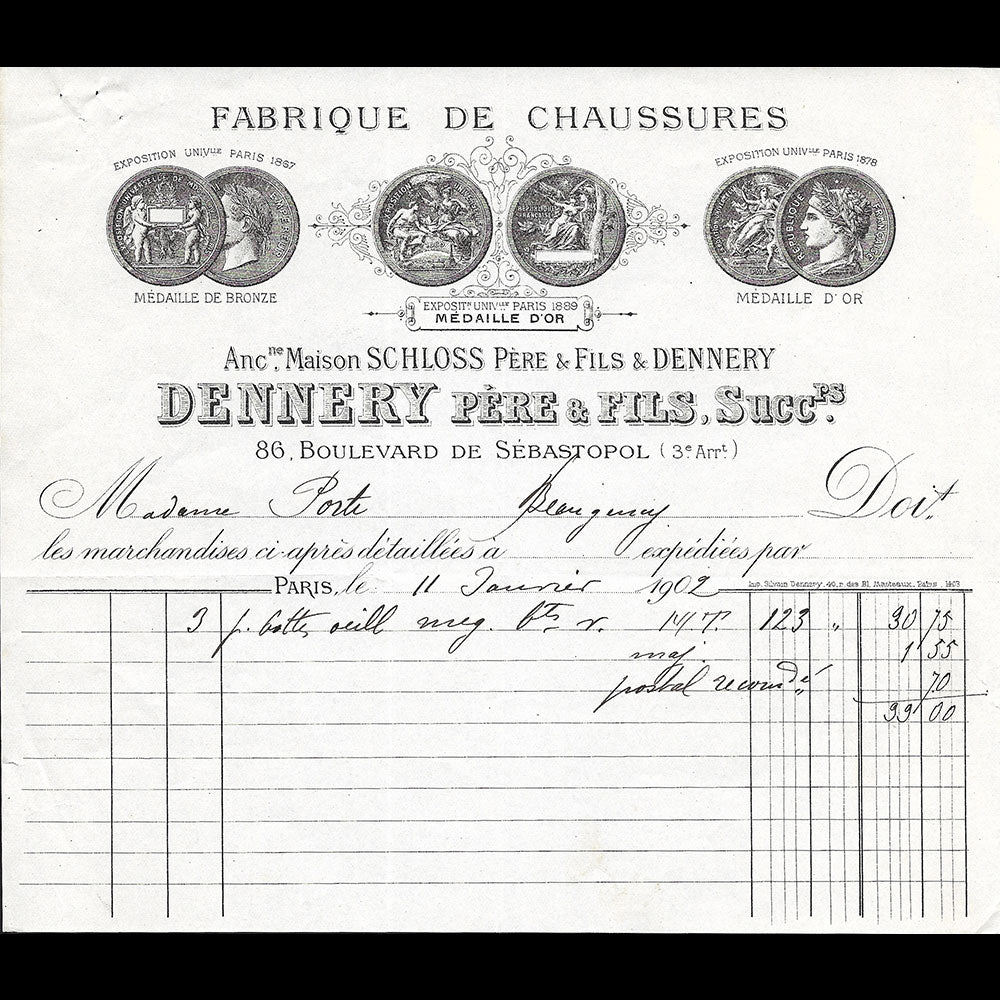 FABRIQUE DE CHAUSSURES
EXPOSITION UNIV^LLE PARIS 1867
EXPOSITION UNIV^LLE PARIS 1878
MÉDAILLE DE BRONZE
EXPOSIT^N UNIV^LLE PARIS 1889
MÉDAILLE D'OR
MÉDAILLE D'OR
Anc^ne. Maison SCHLOSS PÈRE & FILS & DENNERY
DENNERY PÈRE & FILS, Succ^rs.
86, BOULEVARD DE SÉBASTOPOL (3e Arrt)
Madame Porte Beaugency Doit
les marchandises ci-après détaillées à expédiées par
PARIS, le 11 Janvier 1902
Imp. Silvain Dennery, 40, r. des Bl. Manteaux. Paris
3 p. botte oeill meg. bts r. 14/7. 123 " 30 75
maj. 1 55
postal recomdé 70
00